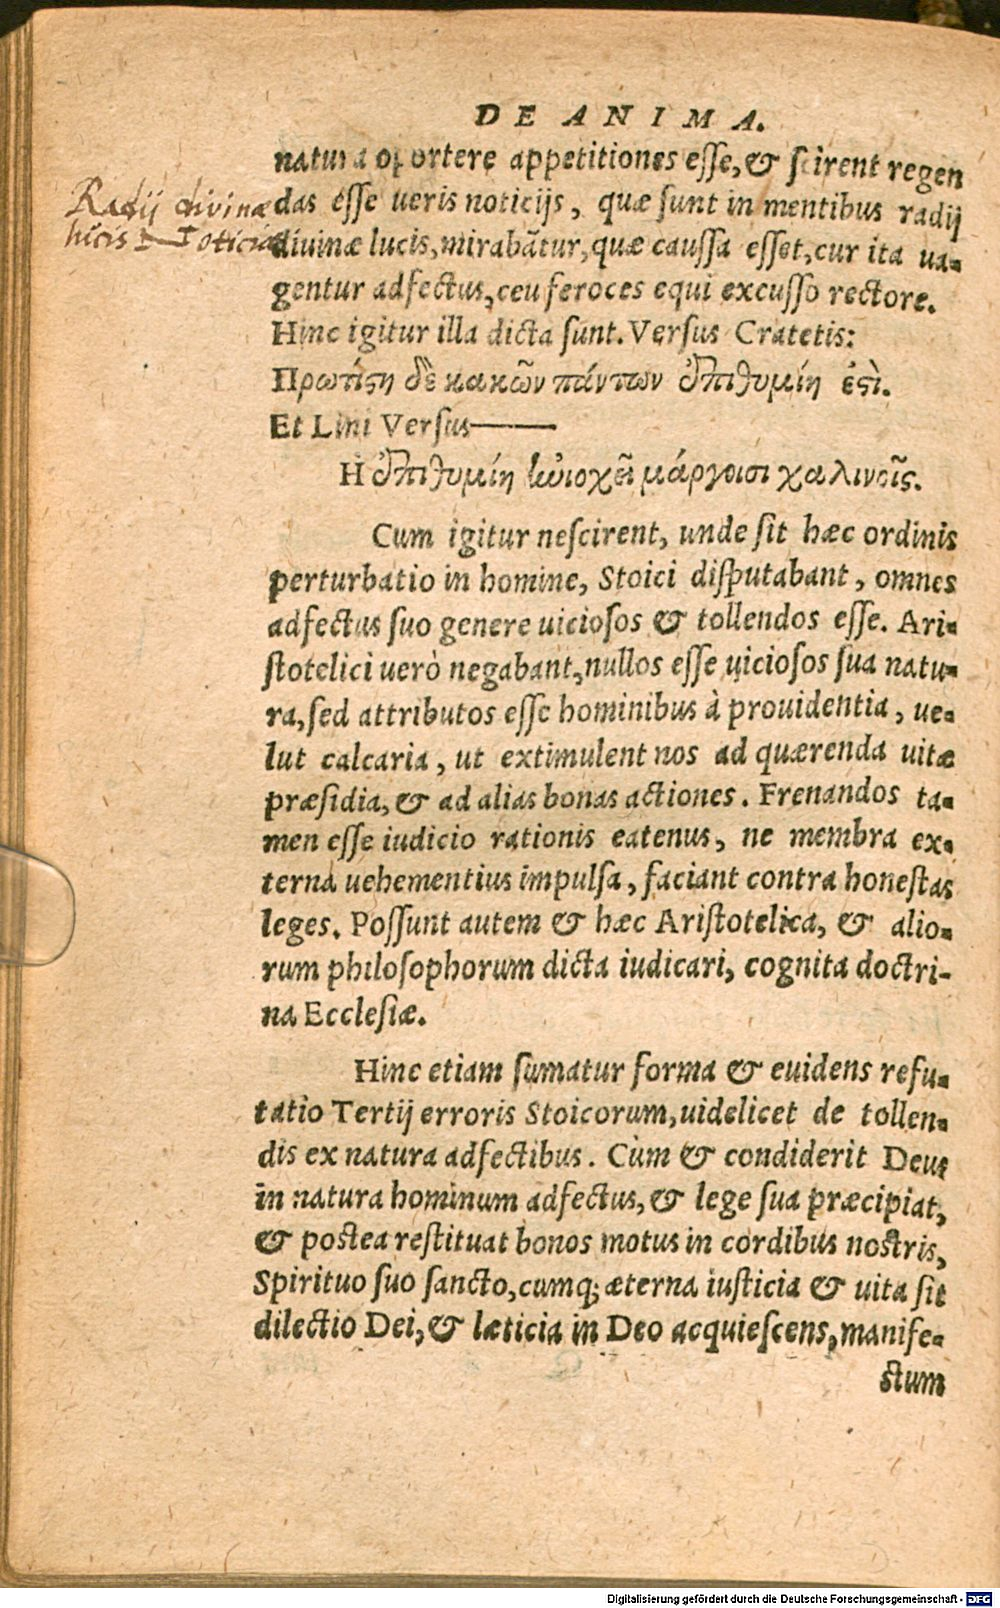 DE ANIMA.
natura oportere appetitiones esse, & scirent regen
Radij divinæ
lucis Noticiæ
das esse ueris noticijs, quæ sunt in mentibus radij
diuinæ lucis, mirabãtur, quæ caussa esset, cur ita ua-
gentur adfectus, ceu feroces equi excusso rectore.
Hinc igitur illa dicta sunt. Versus Cratetis:
Πρωτίςη δὲ κακῶν πάντων ἐπιθυμίη ἐςὶ.
Et Lini Versus———
Η ἐπιθυμίη ἡνιοχεῖ μάργοισι χαλινοῖς.
Cum igitur nescirent, unde sit hæc ordinis
perturbatio in homine, Stoici disputabant, omnes
adfectus suo genere uiciosos & tollendos esse. Ari-
stotelici uerò negabant, nullos esse uiciosos sua natu-
ra, sed attributos esse hominibus à prouidentia, ue-
lut calcaria, ut extimulent nos ad quærenda uitæ
præsidia, & ad alias bonas actiones. Frenandos ta-
men esse iudicio rationis eatenus, ne membra ex-
terna uehementius impulsa, faciant contra honestas
leges. Possunt autem & hæc Aristotelica, & alio-
rum philosophorum dicta iudicari, cognita doctri-
na Ecclesiæ.
Hinc etiam sumatur forma & euidens refu-
tatio Tertij erroris Stoicorum, uidelicet de tollen-
dis ex natura adfectibus. Cùm & condiderit Deus
in natura hominum adfectus, & lege sua præcipiat,
& postea restituat bonos motus in cordibus nostris,
Spirituo suo sancto, cumq; æterna iusticia & uita sit
dilectio Dei, & læticia in Deo acquiescens, manife-
stum
Digitalisierung gefördert durch die Deutsche Forschungsgemeinschaft - DFG